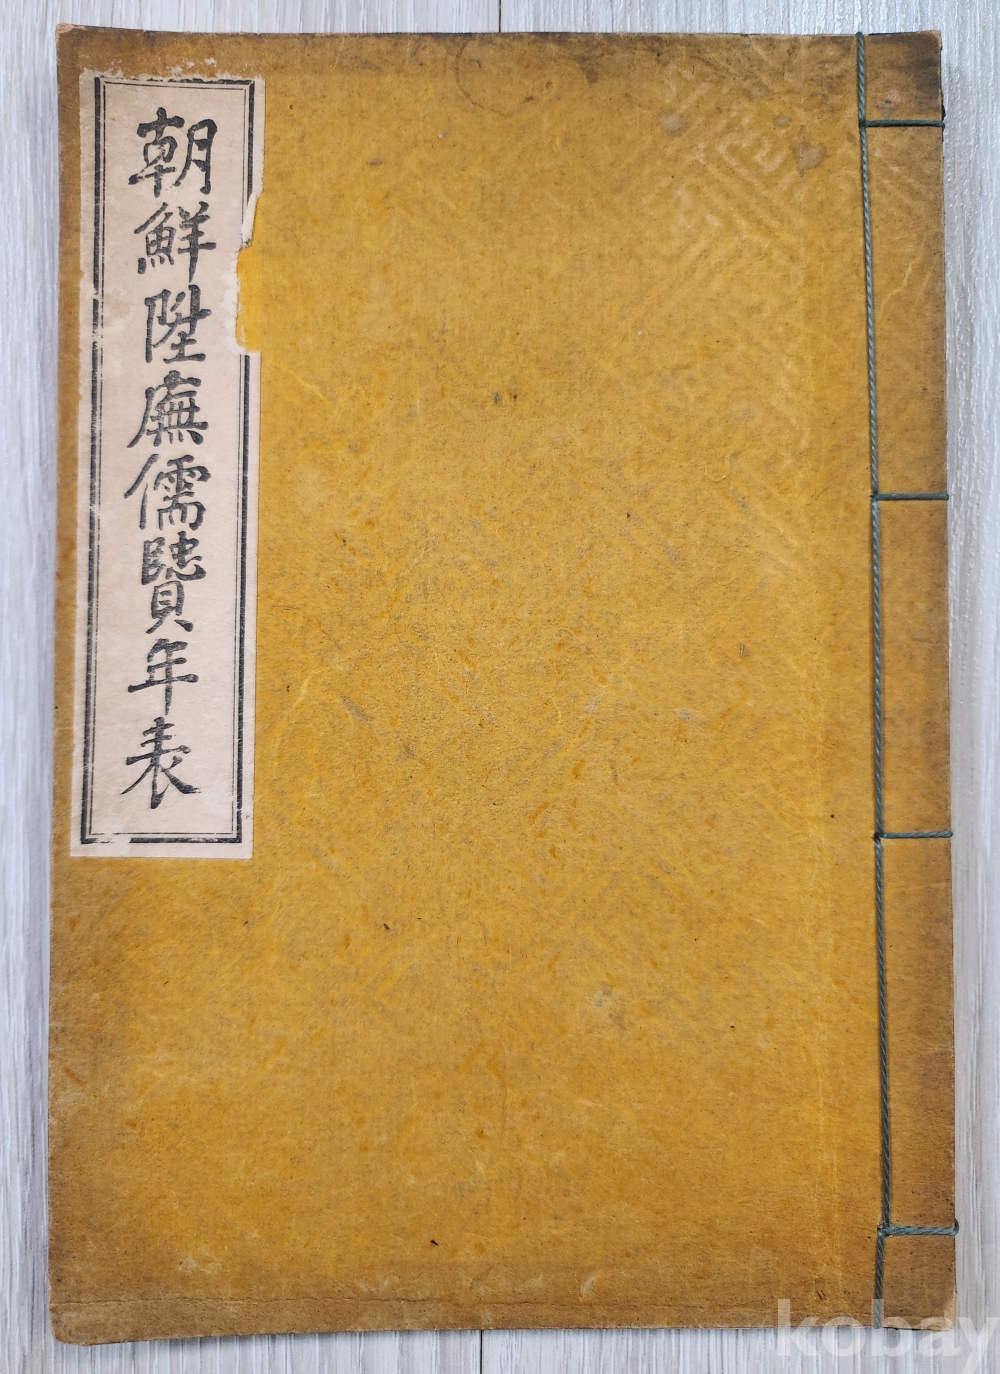 朝鮮陞廡儒賢年表
kobay